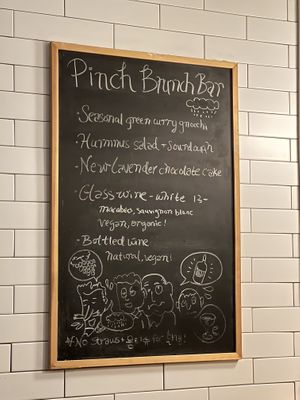 Pinch Brunch Bar
· Seasonal green curry gnocchi
· Hummus salad + sourdough
· New lavender chocolate cake
· Glass wine - white 13-
macabeo, sauvignon blanc
vegan, organic!
· Bottled wine
natural, vegan!
No straws